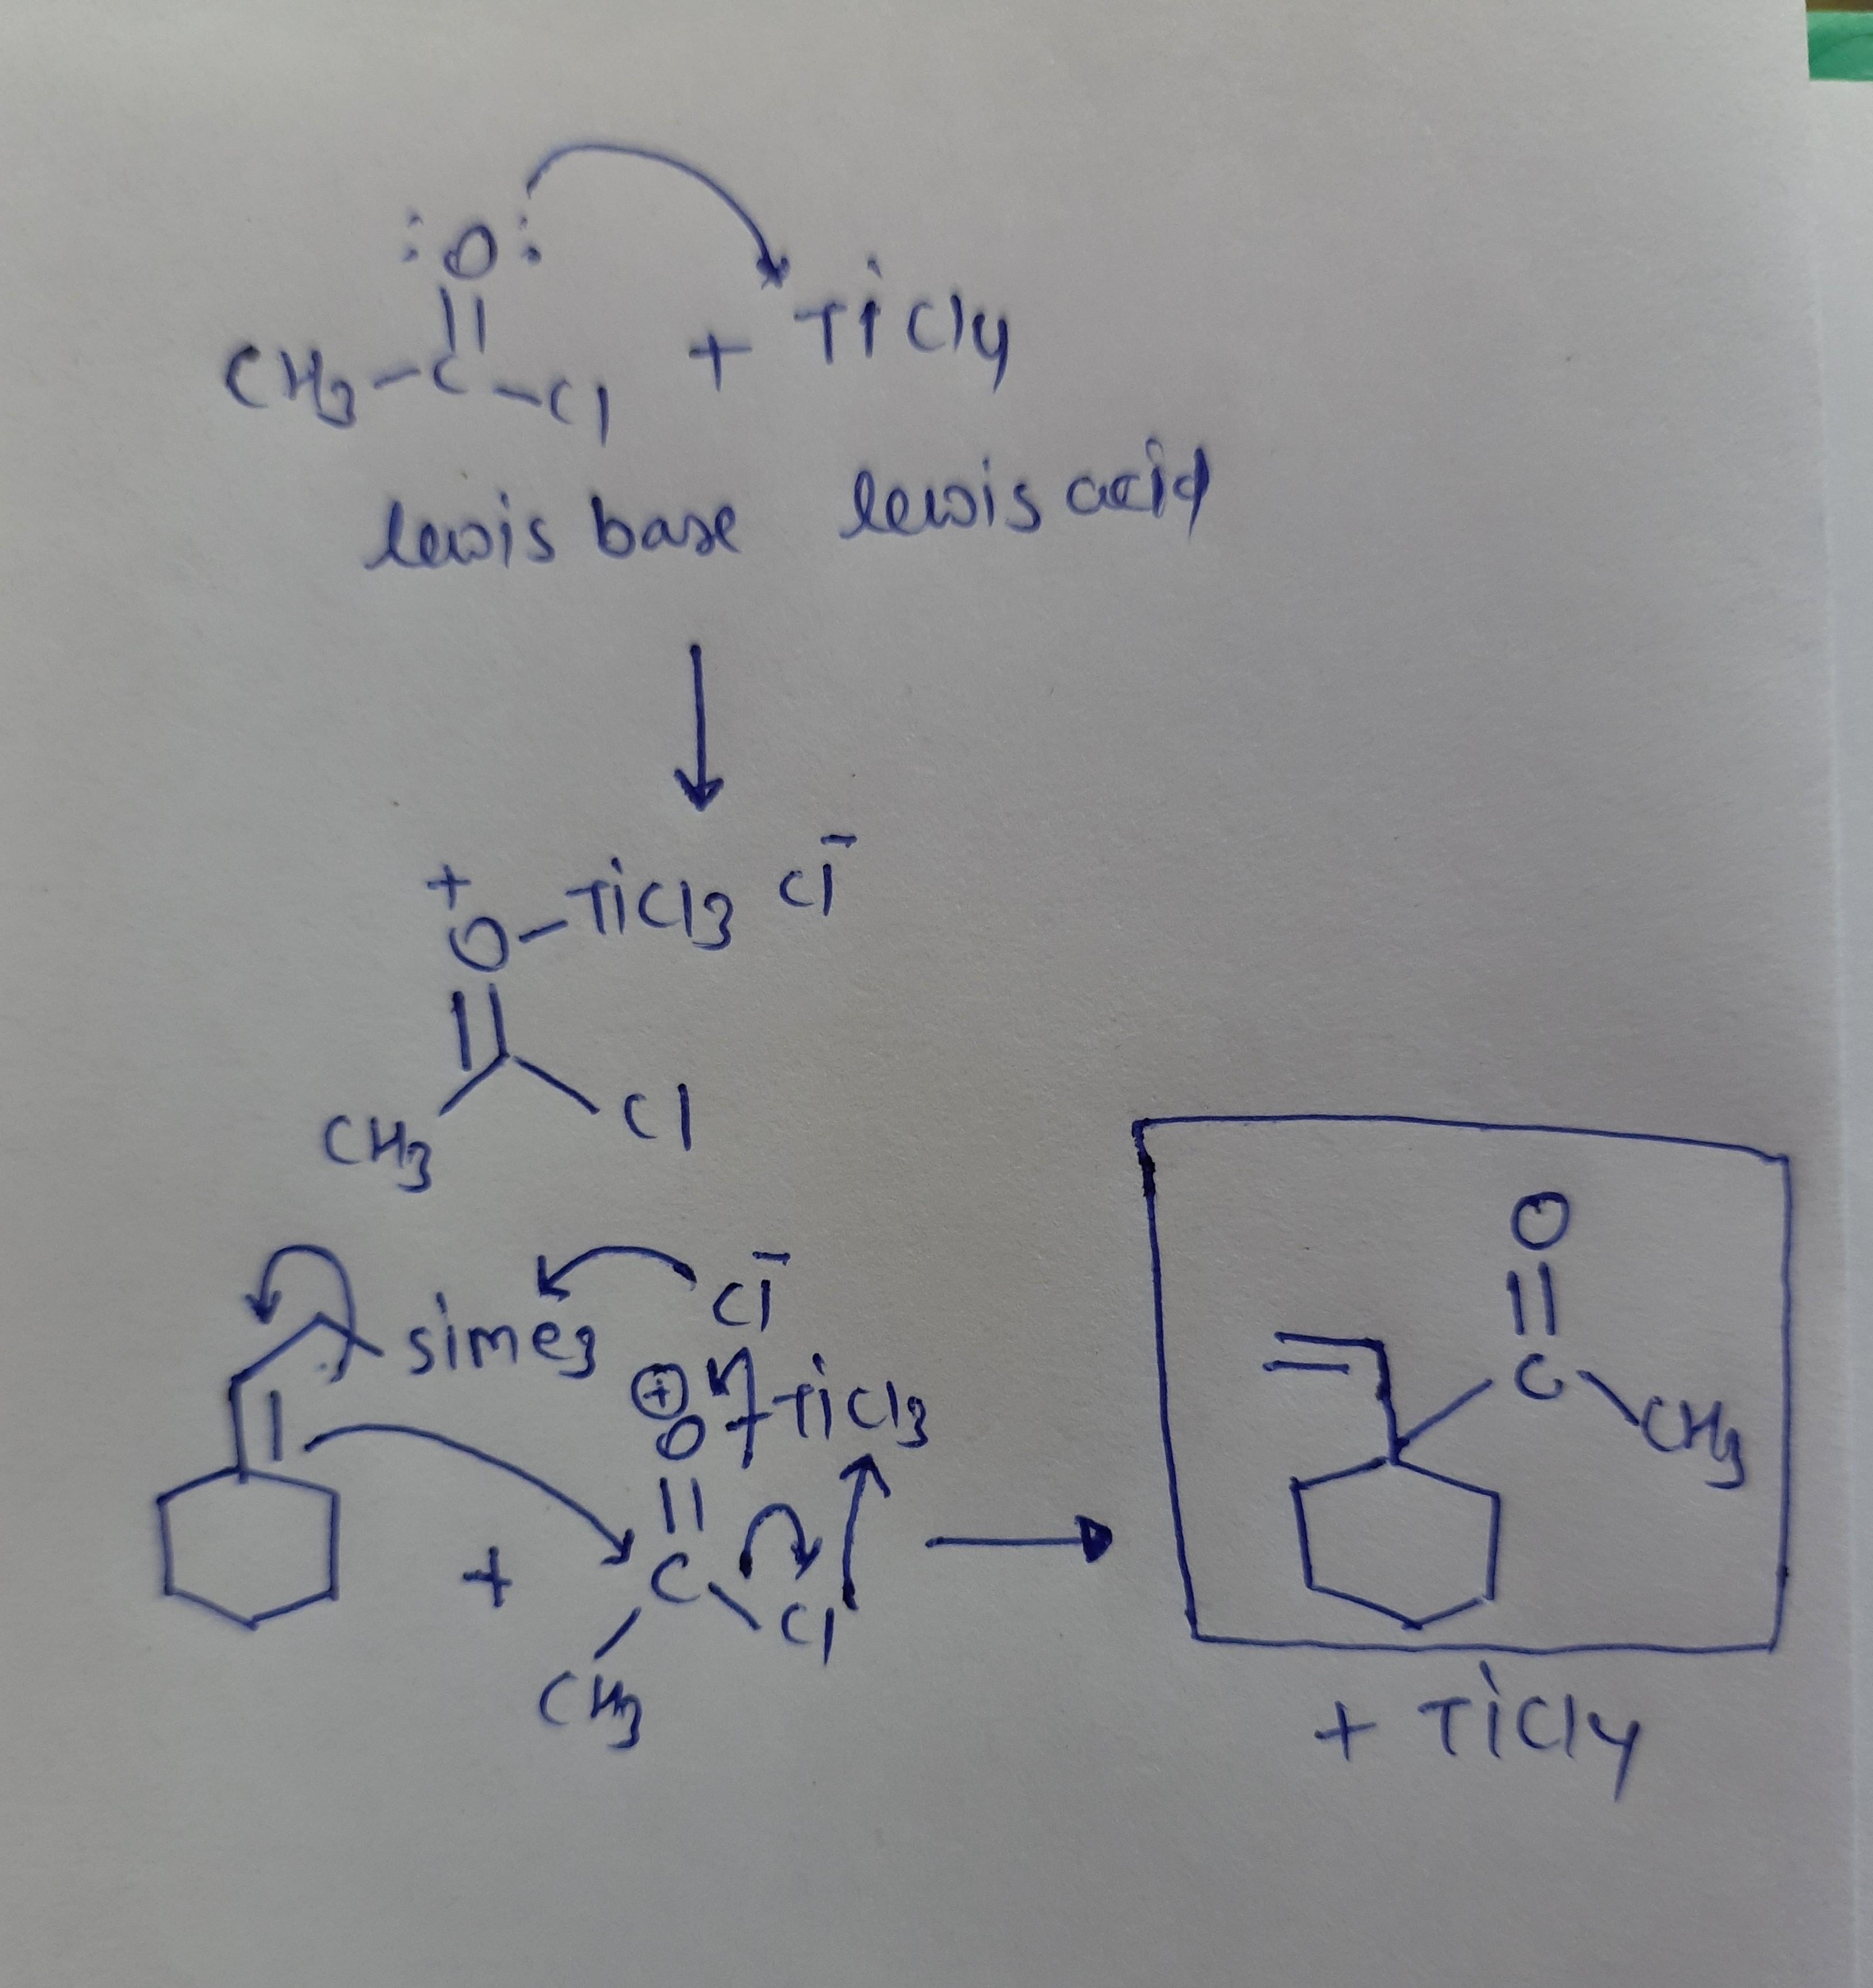 :O:
CH3-C-Cl + TiCl4
lewis base lewis acid
+
O-TiCl3 Cl-
CH3 Cl
Cl-
sime3
⊕
O-TiCl3
+ C
Cl
CH3
O
C
CH3
+ TiCl4